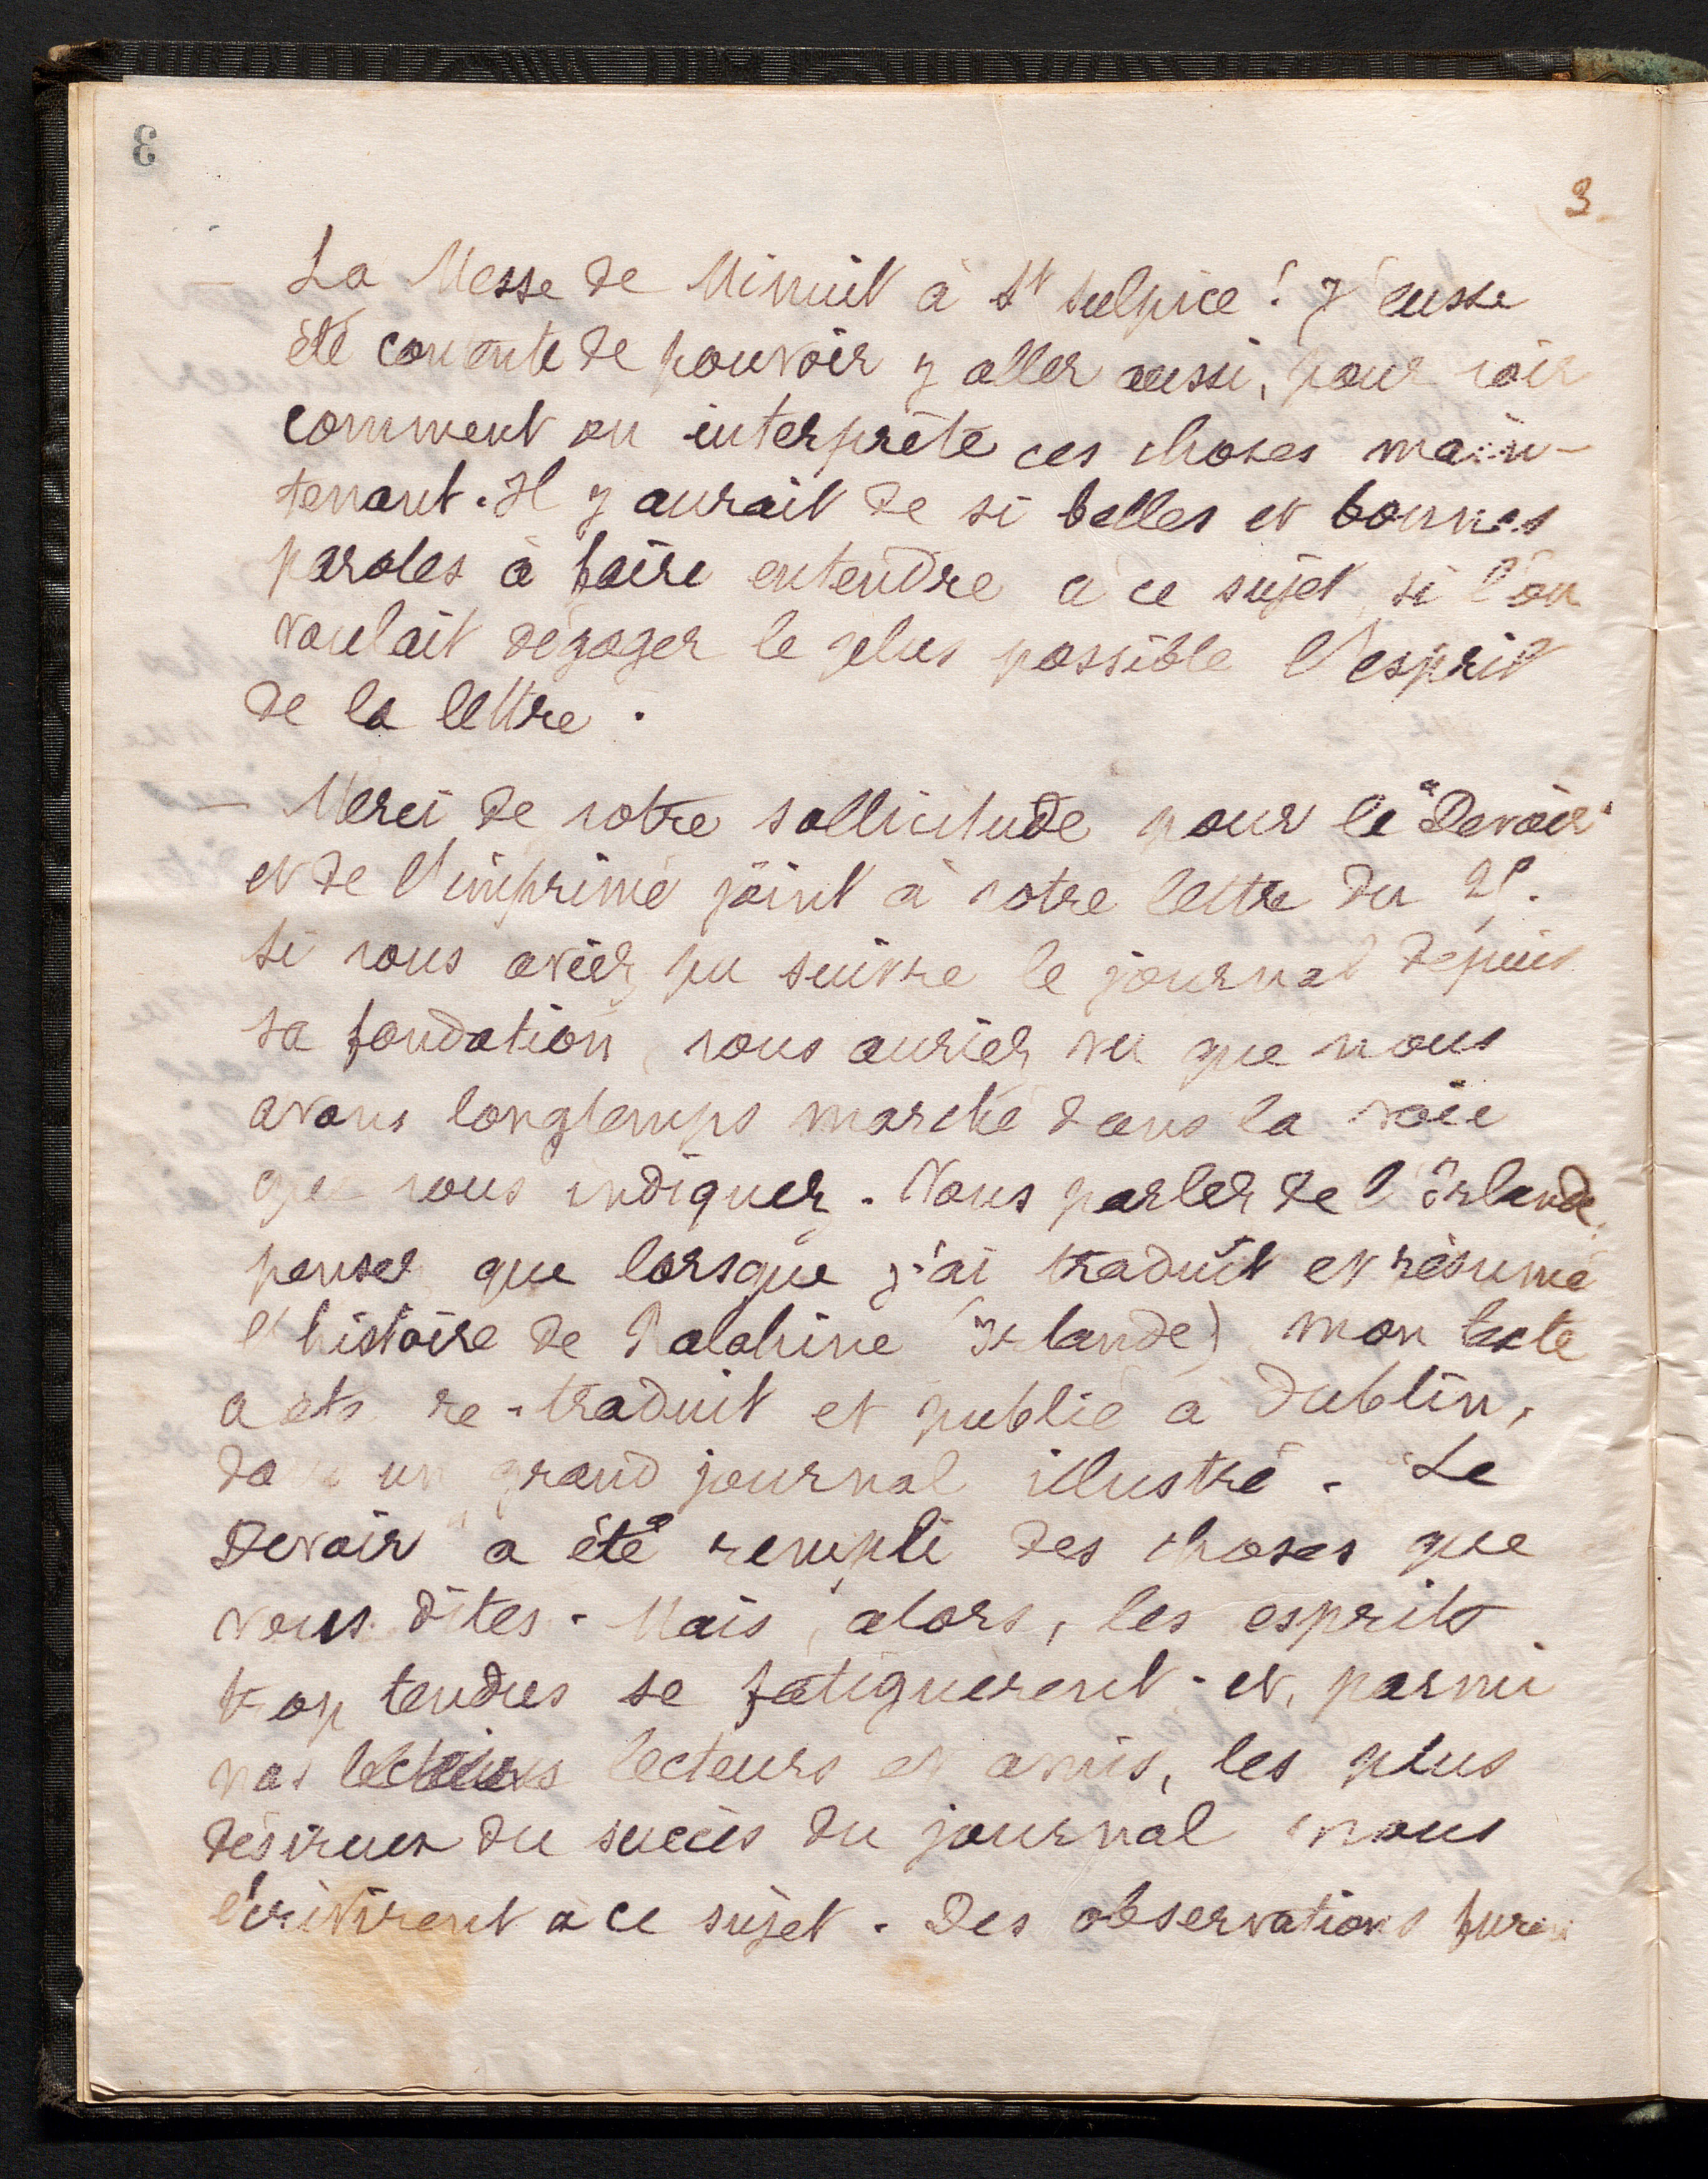 3
3
— La Messe de Minuit à St Sulpice ! J'eusse
été contente de pouvoir y aller aussi, pour voir
comment on interprète ces choses main-
tenant. Il y aurait de si belles et bonnes
paroles à faire entendre à ce sujet, si l'on
voulait dégager le plus possible l'esprit
de la lettre.
— Merci de votre sollicitude pour le "Devoir"
et de l'imprimé joint à votre lettre du
Si vous aviez pu suivre le journal depuis
sa fondation, vous auriez vu que nous
avons longtemps marché dans la voie
que vous indiquez. Vous parlez de l'Irlande,
pensez que lorsque j'ai traduit et résumé
l'histoire de Ralahine (Irlande) mon texte
a été re-traduit et publié à Dublin,
dans un grand journal illustré. "Le
Devoir" a été rempli des choses que
vous dites. Mais, alors, les esprits
trop tendus se fatiguèrent. et, parmi
nos lecteurs lecteurs et amis, les plus
désireux du succès du journal nous
écrivirent à ce sujet. Des observations furent